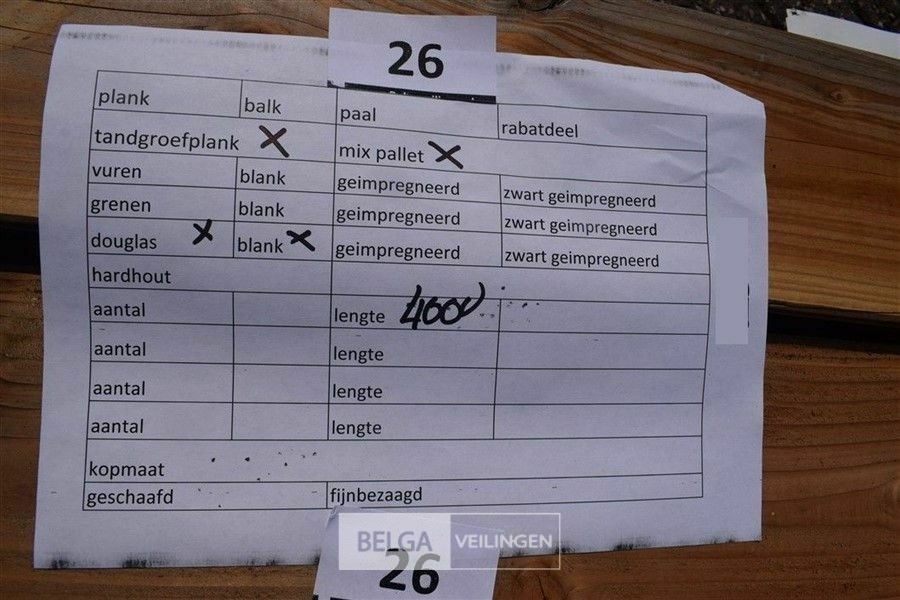 26
plank balk paal rabatdeel
tandgroefplank X mix pallet X
vuren blank geimpregneerd zwart geimpregneerd
grenen blank geimpregneerd zwart geimpregneerd
douglas X blank X geimpregneerd zwart geimpregneerd
hardhout
aantal lengte 4000
aantal lengte
aantal lengte
aantal lengte
kopmaat
geschaafd fijnbezaagd
BELGA VEILINGEN
26